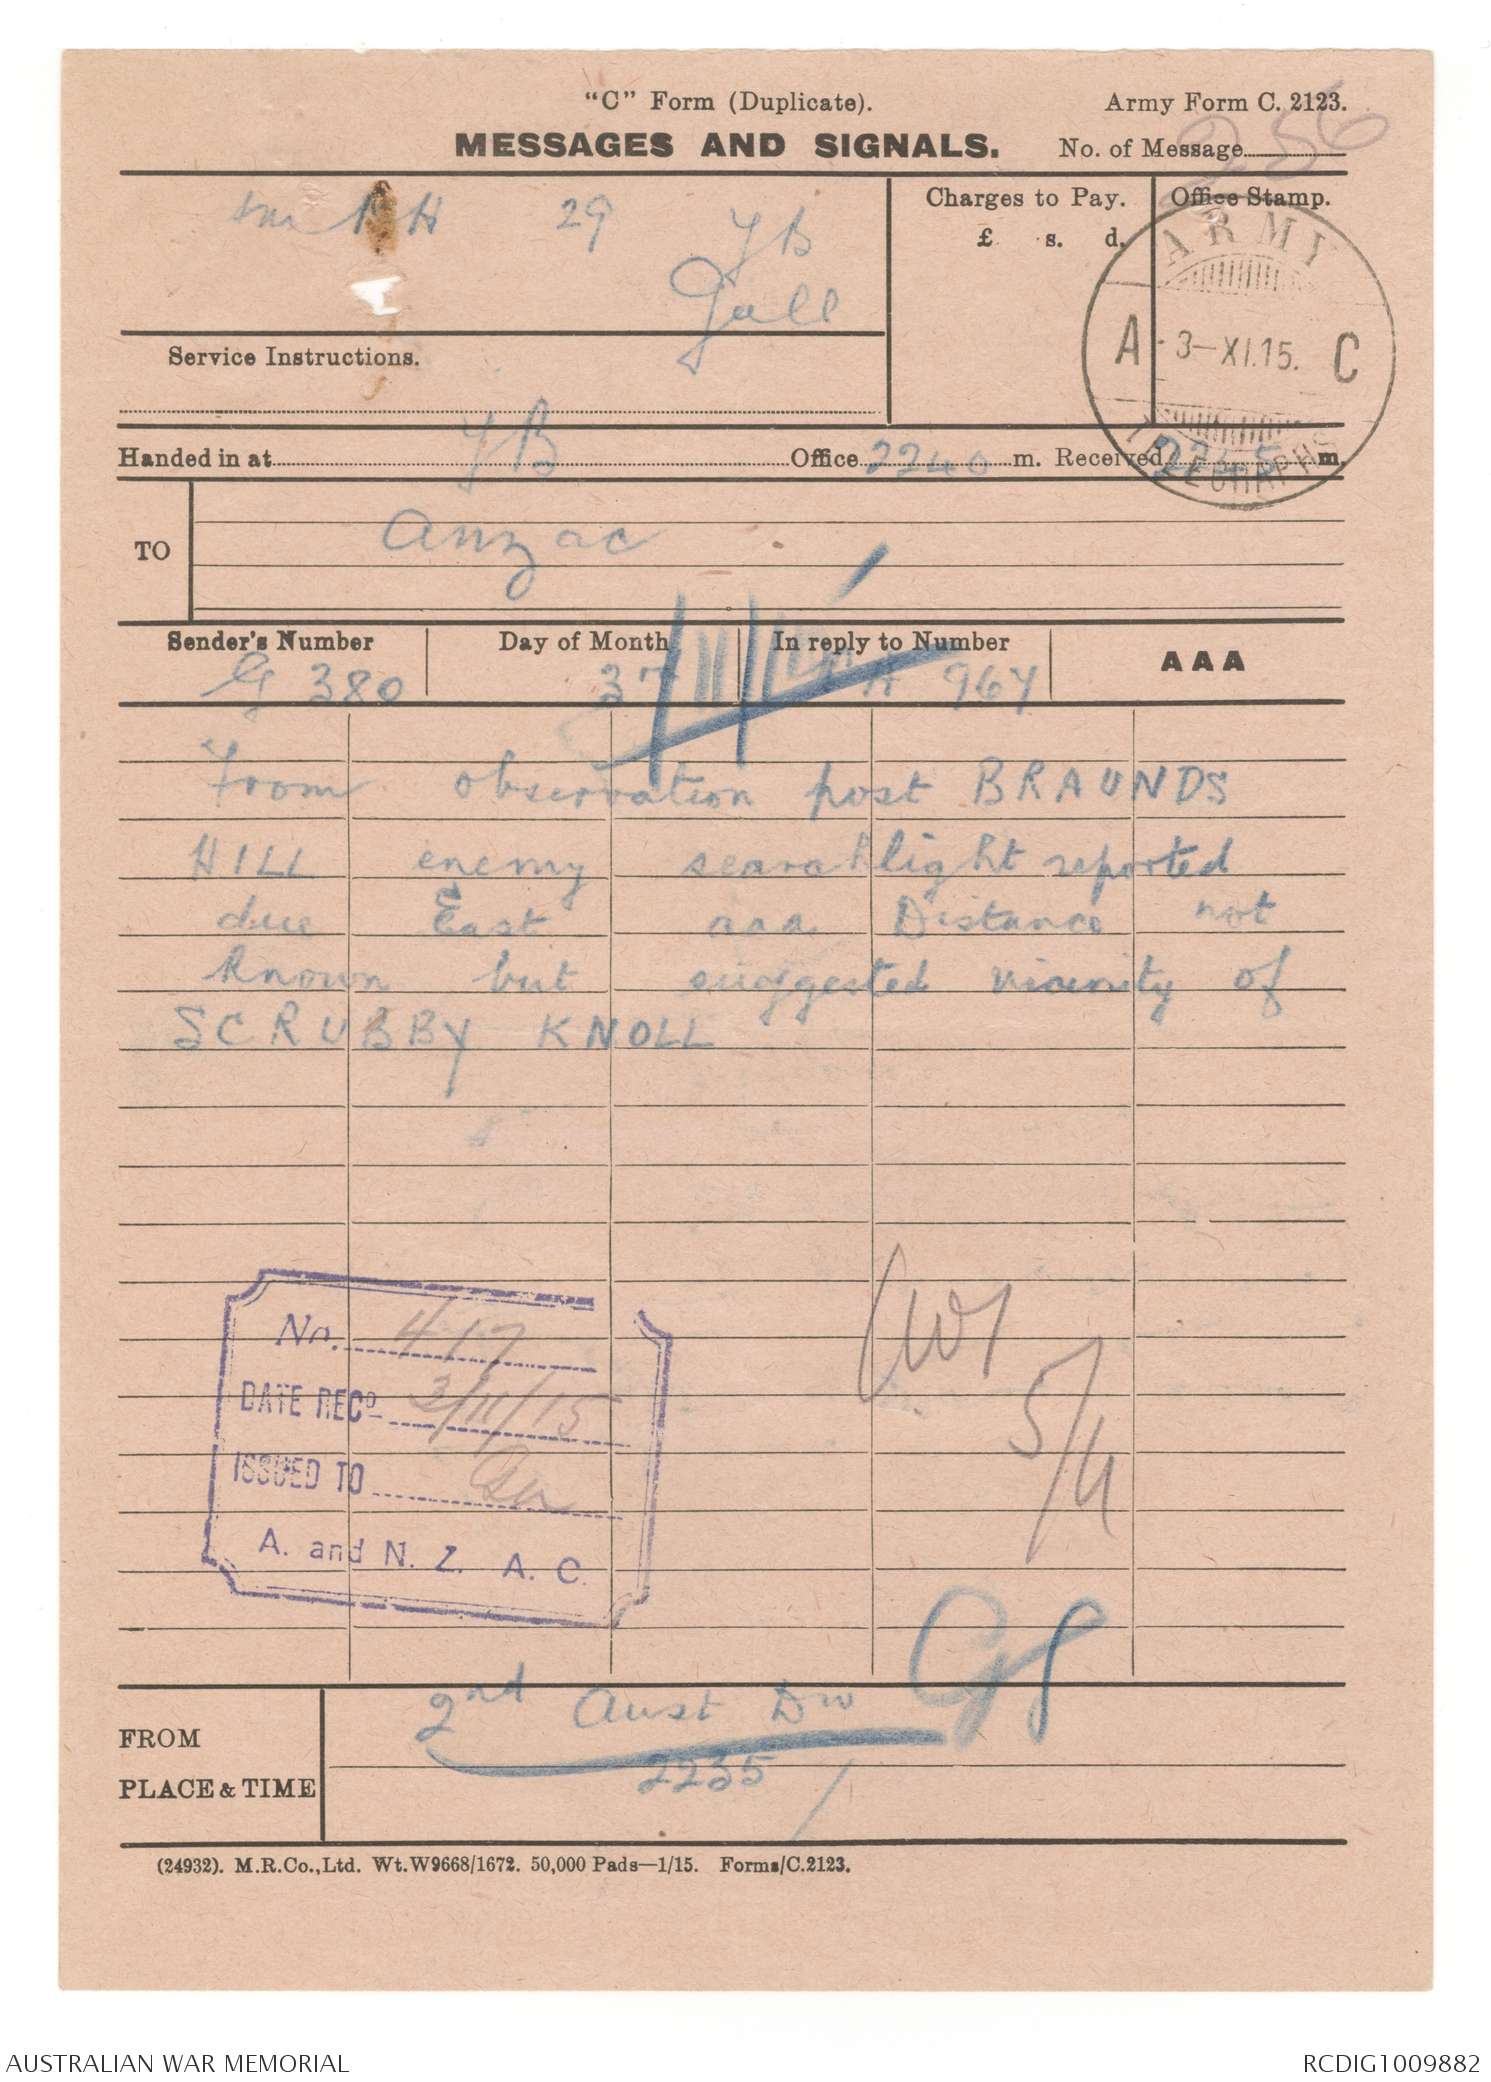 "C" Form (Duplicate).
Army Form C. 2123.
MESSAGES AND SIGNALS.
No. of Message 256
sm H 29 YB
Gall
Charges to Pay.
£ s. d.
Office Stamp.
ARMY
A 3-XI.15. C
TELEGRAPHS
Service Instructions.
Handed in at YB Office 2240 m. Received 2245 m.
TO Anzac
Sender's Number
Day of Month
In reply to Number
AAA
G 380 3 A 967
From observation post BRAUNDS
HILL enemy searchlight reported
due East aaa Distance not
known but suggested vicinity of
SCRUBBY KNOLL
No. 417
DATE RECD 3/11/15
ISSUED TO
A. and N. Z. A. C.
5/11
FROM 2nd Aust Div
PLACE & TIME 2235
(24932). M.R.Co.,Ltd. Wt.W9668/1672. 50,000 Pads—1/15. Forms/C.2123.
AUSTRALIAN WAR MEMORIAL
RCDIG1009882